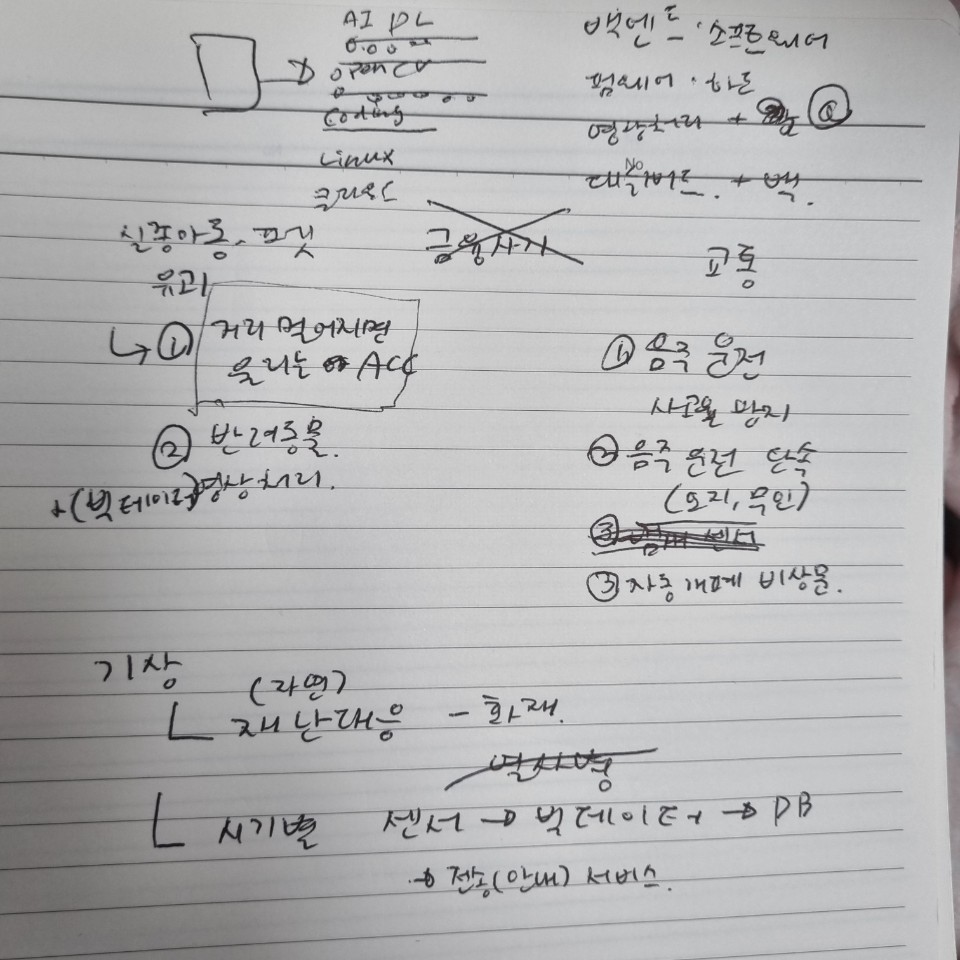 AI DL
OpenCV
Coding
Linux
클라우드
백엔드·소프트웨어
펌웨어·하드
영상처리 +
No
딜리버드. + 백.
실종아동,
유괴
금융사기
교통
① 거리 멀어지면
울리는 ACC
② 반려동물.
+(빅데이터)영상처리.
① 음주 운전
사고율 방지
② 음주 운전 단속
(오지, 무인)
③ 센서
③ 자동개폐 비상문.
기상
(자연)
재난대응 - 화재.
열사병
시기별 센서 → 빅데이터 → DB
→ 전송(안내) 서비스.